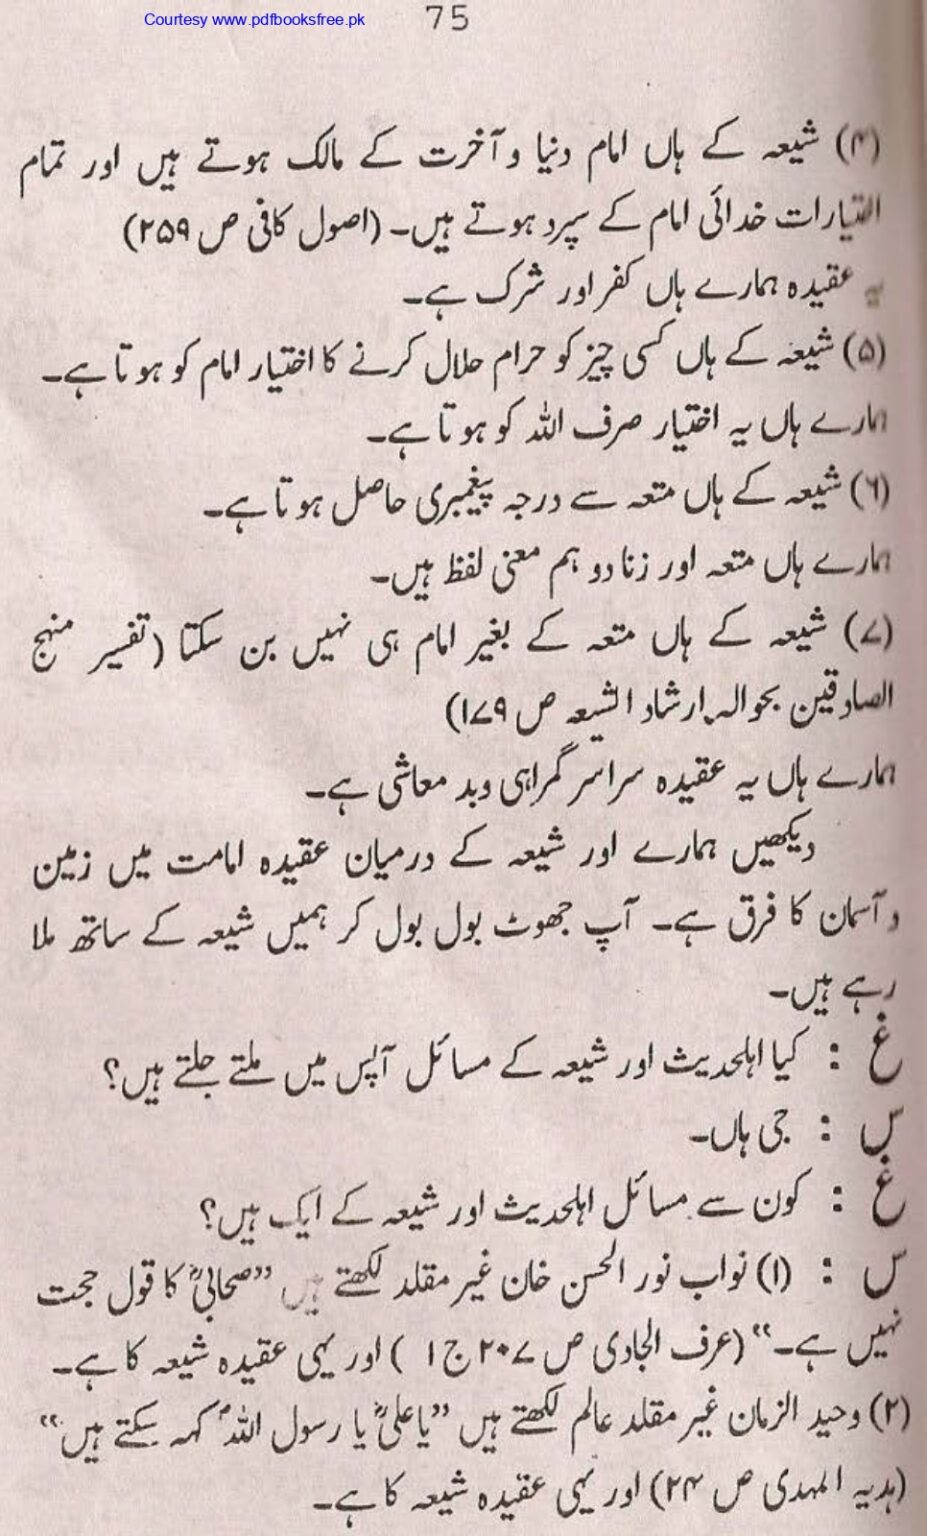 Courtesy www.pdfbooksfree.pk
75
(۴) شیعہ کے ہاں امام دنیا و آخرت کے مالک ہوتے ہیں اور تمام
اختیارات خدائی امام کے سپرد ہوتے ہیں۔ (اصول کافی ص ۲۵۹)
یہ عقیدہ ہمارے ہاں کفر اور شرک ہے۔
(۵) شیعہ کے ہاں کسی چیز کو حرام حلال کرنے کا اختیار امام کو ہوتا ہے۔
ہمارے ہاں یہ اختیار صرف اللہ کو ہوتا ہے۔
(۶) شیعہ کے ہاں متعہ سے درجہ پیغمبری حاصل ہوتا ہے۔
ہمارے ہاں متعہ اور زنا دو ہم معنی لفظ ہیں۔
(۷) شیعہ کے ہاں متعہ کے بغیر امام ہی نہیں بن سکتا (تفسیر منہج
الصادقین بحوالہ ارشاد الشیعہ ص ۱۷۹)
ہمارے ہاں یہ عقیدہ سراسر گمراہی و بدمعاشی ہے۔
دیکھیں ہمارے اور شیعہ کے درمیان عقیدہ امامت میں زمین
و آسمان کا فرق ہے۔ آپ جھوٹ بول بول کر ہمیں شیعہ کے ساتھ ملا
رہے ہیں۔
غ : کیا اہلحدیث اور شیعہ کے مسائل آپس میں ملتے جلتے ہیں؟
س : جی ہاں۔
غ : کون سے مسائل اہلحدیث اور شیعہ کے ایک ہیں؟
س : (۱) نواب نور الحسن خان غیر مقلد لکھتے ہیں ”صحابیؓ کا قول حجت
نہیں ہے۔“ (عرف الجادی ص ۲۰۷ ج ۱ ) اور یہی عقیدہ شیعہ کا ہے۔
(۲) وحید الزمان غیر مقلد عالم لکھتے ہیں ”یا علیؓ یا رسول اللہؐ کہہ سکتے ہیں“
(ہدیہ المہدی ص ۲۴) اور یہی عقیدہ شیعہ کا ہے۔